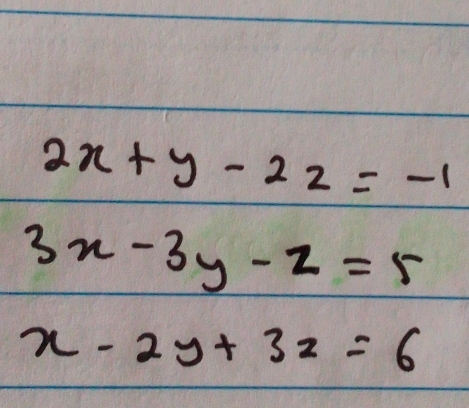 2x + y - 2z = -1
3x - 3y - z = 5
x - 2y + 3z = 6